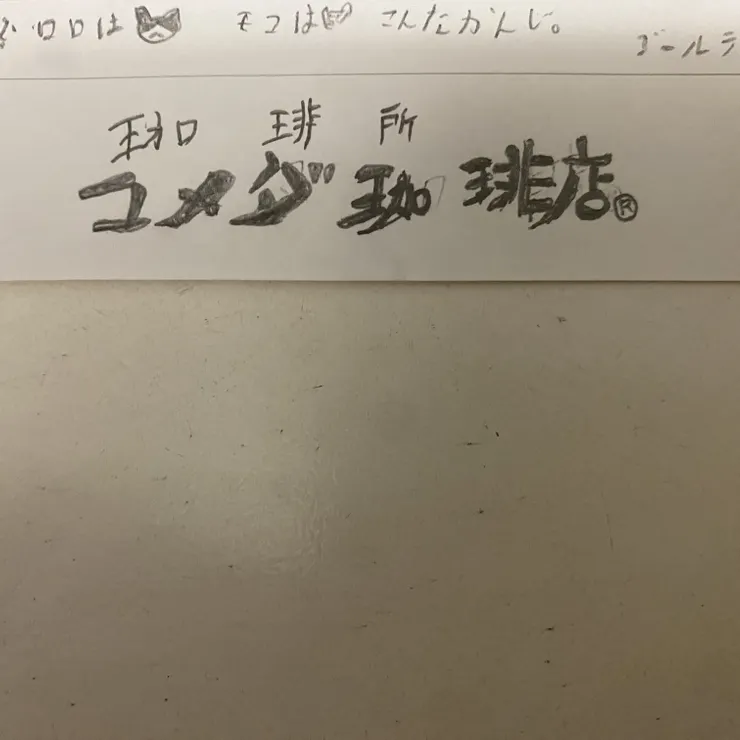 ロロは モコは こんなかんじ。
ゴールデ
珈 琲 所
コメダ珈琲店®